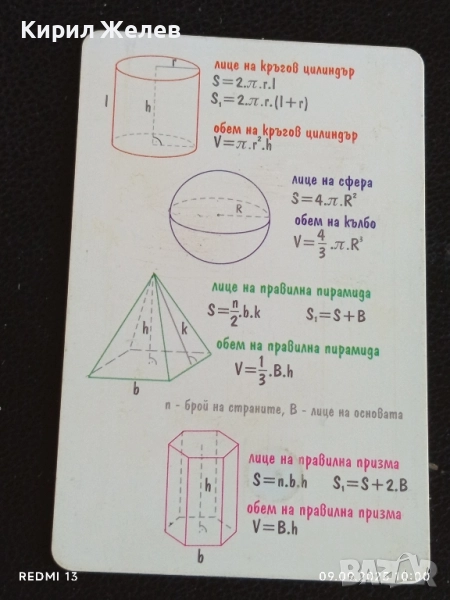 Кирил Желев
лице на кръгов цилиндър
S=2.π.r.l
S₁=2.π.r.(l+r)
обем на кръгов цилиндър
V=π.r².h
r
l
h
лице на сфера
S=4.π.R²
обем на кълбо
V=4/3.π.R³
R
лице на правилна пирамида
S=n/2.b.k S₁=S+B
обем на правилна пирамида
V=1/3.B.h
h
k
b
n - брой на страните, B - лице на основата
лице на правилна призма
S=n.b.h S₁=S+2.B
обем на правилна призма
V=B.h
h
b
BAZAR
REDMI 13